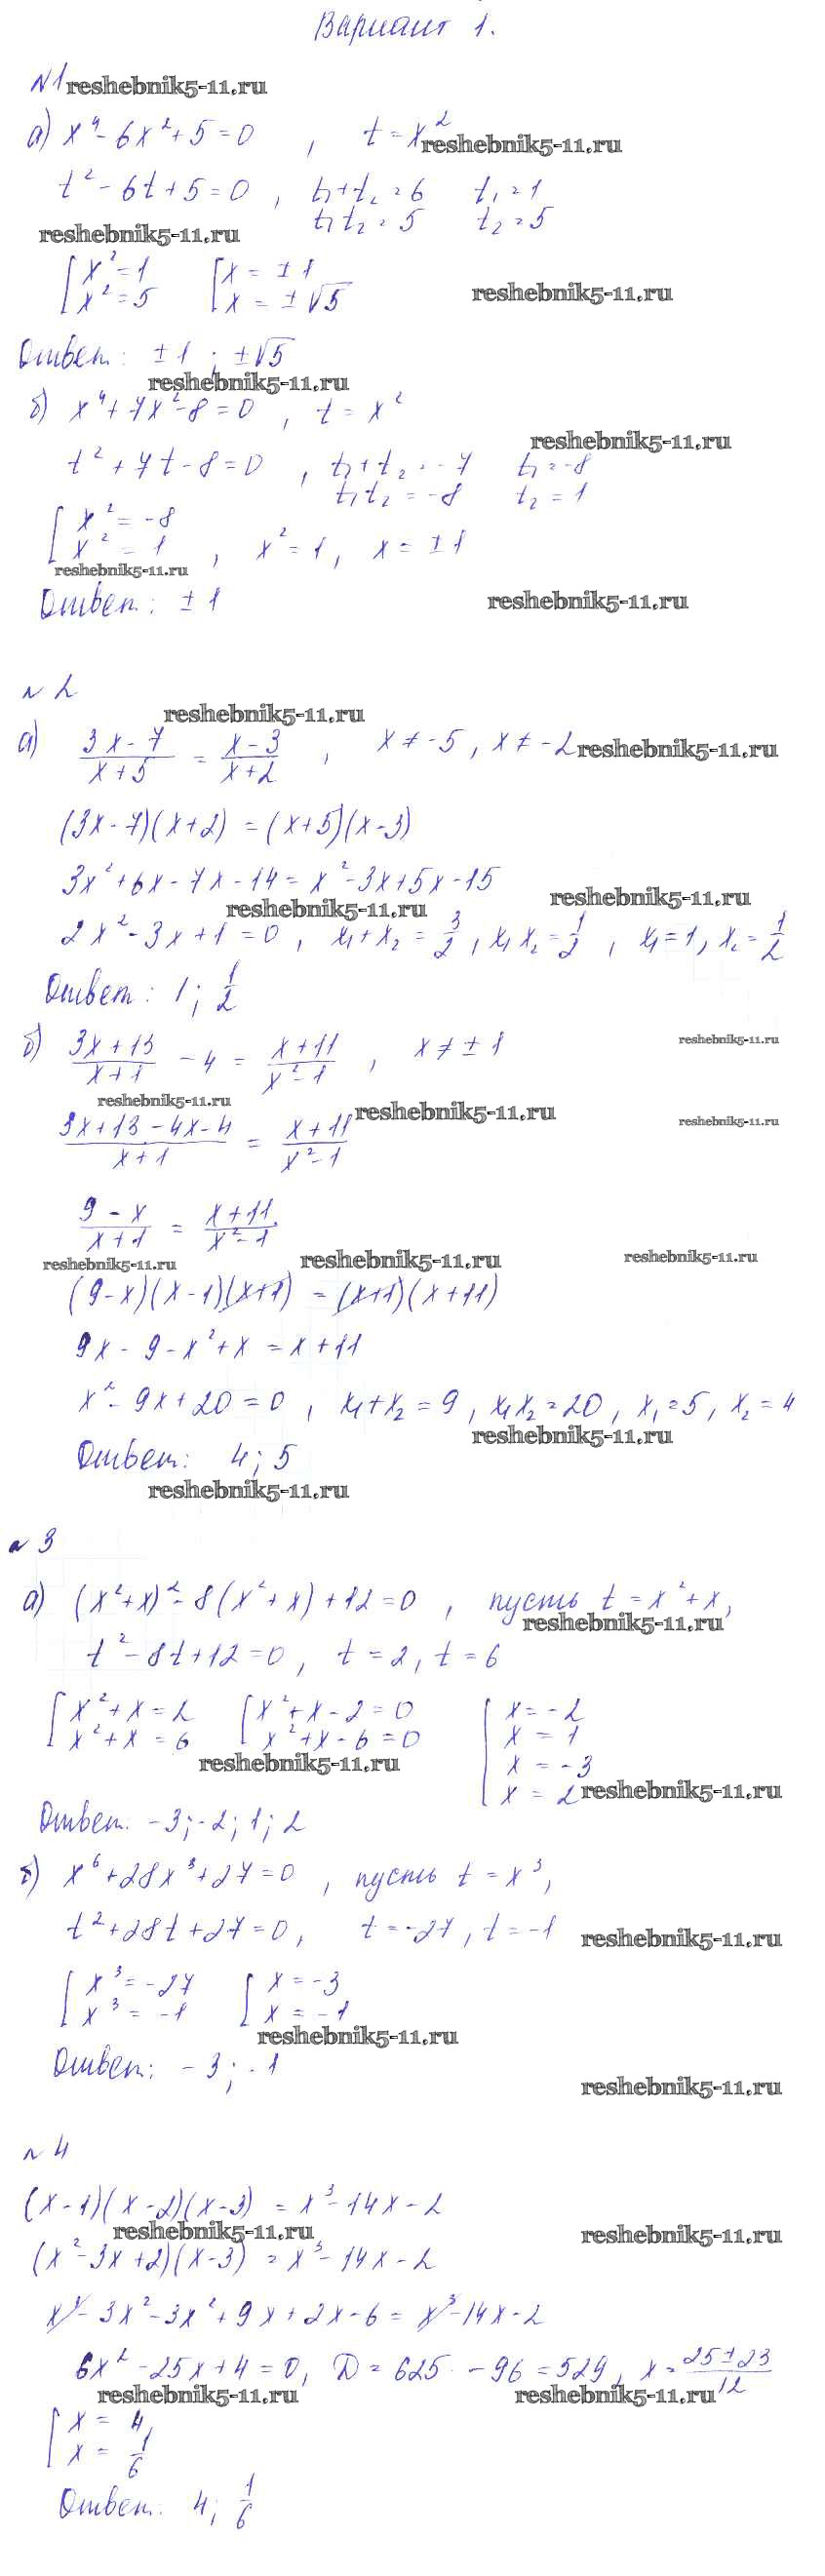 Вариант 1.
№1 reshebnik5-11.ru
а) x⁴ - 6x² + 5 = 0 , t = x² reshebnik5-11.ru
t² - 6t + 5 = 0 , t₁ + t₂ = 6 t₁ = 1
t₁ t₂ = 5 t₂ = 5
reshebnik5-11.ru
[ x² = 1 [ x = ± 1
x² = 5 x = ± √5 reshebnik5-11.ru
Ответ: ± 1 ; ± √5
reshebnik5-11.ru
б) x⁴ + 7x² - 8 = 0 , t = x²
reshebnik5-11.ru
t² + 7t - 8 = 0 , t₁ + t₂ = -7 t₁ = -8
t₁ t₂ = -8 t₂ = 1
[ x² = -8
x² = 1 , x² = 1 , x = ± 1
reshebnik5-11.ru
Ответ: ± 1 reshebnik5-11.ru
№ 2
reshebnik5-11.ru
а) (3x - 7)/(x + 5) = (x - 3)/(x + 2) , x ≠ -5 , x ≠ -2 reshebnik5-11.ru
(3x - 7)(x + 2) = (x + 5)(x - 3)
3x² + 6x - 7x - 14 = x² - 3x + 5x - 15
reshebnik5-11.ru reshebnik5-11.ru
2x² - 3x + 1 = 0 , x₁ + x₂ = 3/2 , x₁ x₂ = 1/2 , x₁ = 1 , x₂ = 1/2
Ответ: 1 ; 1/2
б) (3x + 13)/(x + 1) - 4 = (x + 11)/(x² - 1) , x ≠ ± 1 reshebnik5-11.ru
reshebnik5-11.ru reshebnik5-11.ru reshebnik5-11.ru
(3x + 13 - 4x - 4)/(x + 1) = (x + 11)/(x² - 1)
(9 - x)/(x + 1) = (x + 11)/(x² - 1)
reshebnik5-11.ru reshebnik5-11.ru reshebnik5-11.ru
(9 - x)(x - 1)(x + 1) = (x + 1)(x + 11)
9x - 9 - x² + x = x + 11
x² - 9x + 20 = 0 , x₁ + x₂ = 9 , x₁ x₂ = 20 , x₁ = 5 , x₂ = 4
reshebnik5-11.ru
Ответ: 4 ; 5
reshebnik5-11.ru
№ 3
а) (x² + x)² - 8(x² + x) + 12 = 0 , пусть t = x² + x ,
reshebnik5-11.ru
t² - 8t + 12 = 0 , t = 2 , t = 6
[ x² + x = 2 [ x² + x - 2 = 0 [ x = -2
x² + x = 6 x² + x - 6 = 0 x = 1
reshebnik5-11.ru x = -3
x = 2 reshebnik5-11.ru
Ответ. -3 ; -2 ; 1 ; 2
б) x⁶ + 28x³ + 27 = 0 , пусть t = x³ ,
t² + 28t + 27 = 0 , t = -27 , t = -1 reshebnik5-11.ru
[ x³ = -27 [ x = -3
x³ = -1 x = -1
reshebnik5-11.ru
Ответ: -3 ; -1
reshebnik5-11.ru
№ 4
(x - 1)(x - 2)(x - 3) = x³ - 14x - 2
reshebnik5-11.ru reshebnik5-11.ru
(x² - 3x + 2)(x - 3) = x³ - 14x - 2
x³ - 3x² - 3x² + 9x + 2x - 6 = x³ - 14x - 2
6x² - 25x + 4 = 0 , D = 625 - 96 = 529 , x = (25 ± 23)/12
reshebnik5-11.ru reshebnik5-11.ru
[ x = 4,
x = 1/6
Ответ: 4 ; 1/6